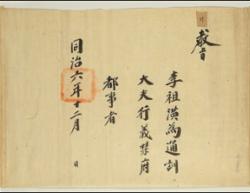 敎旨
李祖潢為通訓
大夫行義禁府
都事者
同治六年十二月　日